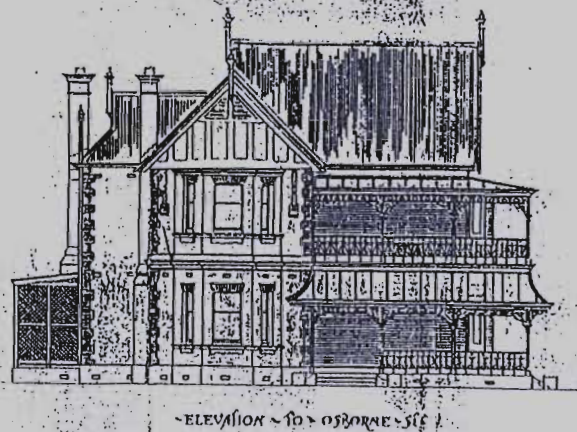 ~ELEVATION ~ TO ~ OSBORNE ~ ST~